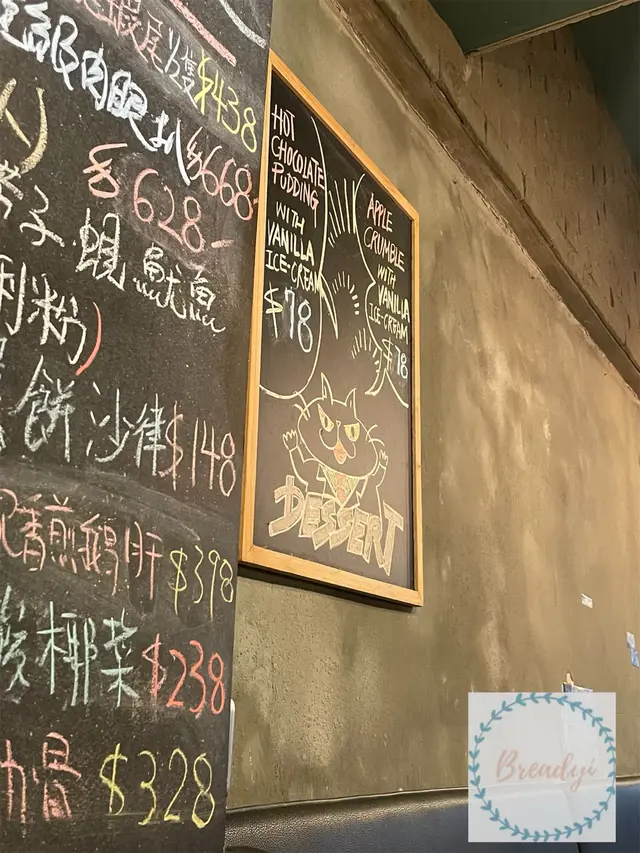 蝦尾隻$438
級肉眼扒$668-
$628-
子蜆魷魚
粉)
餅沙律$148
香煎鵝肝$398
椰菜$238
骨$328
HOT
CHOCOLATE
PUDDING
WITH
VANILLA
ICE-CREAM
$78
APPLE
CRUMBLE
WITH
VANILLA
ICE-CREAM
$78
DESSERT
Breadyi